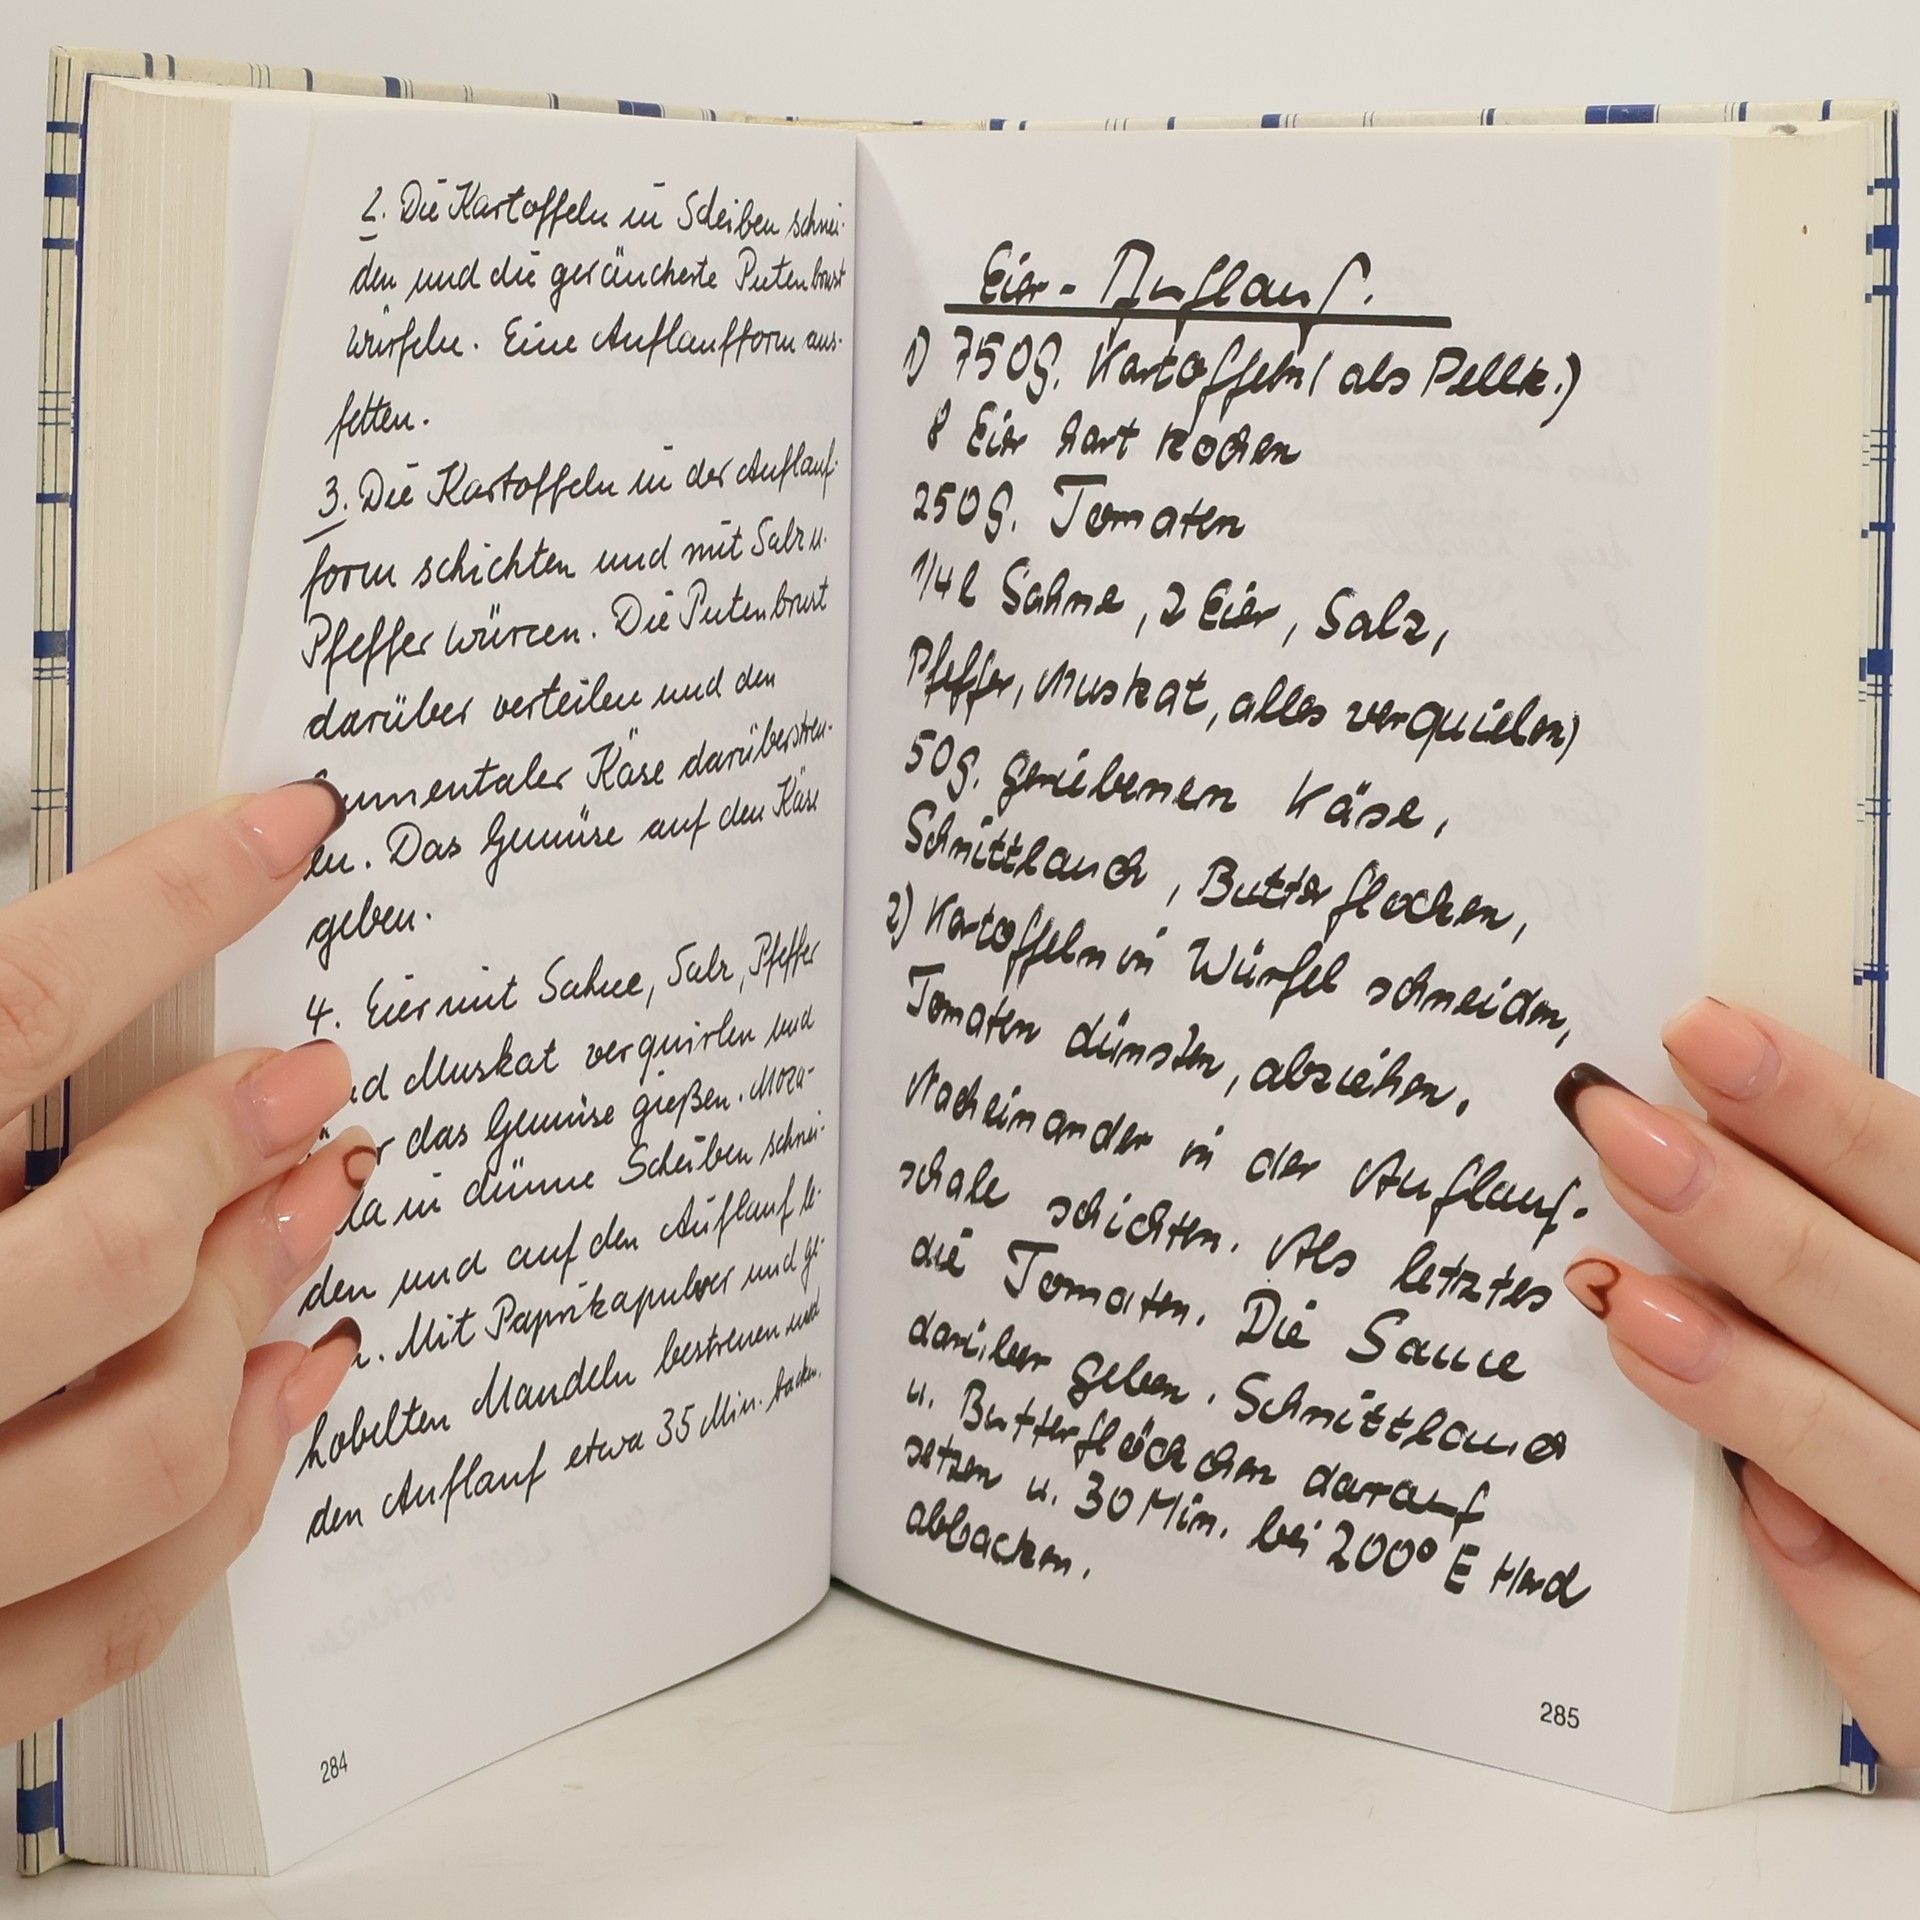 2. Die Kartoffeln in Scheiben schnei-
den und die geräucherte Putenbrust
würfeln. Eine Auflaufform aus-
fetten.
3. Die Kartoffeln in der Auflauf-
form schichten und mit Salz u.
Pfeffer würzen. Die Putenbrust
darüber verteilen und den
mmentaler Käse darüberstreu-
en. Das Gemüse auf den Käse
geben.
4. Eier mit Sahne, Salz, Pfeffer
nd Muskat verquirlen und
r das Gemüse gießen. Moza-
la in dünne Scheiben schnei-
den und auf den Auflauf le-
n. Mit Paprikapulver und ge-
hobelten Mandeln bestreuen und
den Auflauf etwa 35 Min. backen.
284
Eier-Auflauf.
1) 750g. Kartoffeln (als Pellk.)
8 Eier hart kochen
250g. Tomaten
1/4 l Sahne, 2 Eier, Salz,
Pfeffer, Muskat, alles verquielen)
50g. geriebenen Käse,
Schnittlauch, Butterflocken,
2) Kartoffeln in Würfel schneiden,
Tomaten dünsten, abziehen.
Nacheinander in der Auflauf-
schale schichten. Als letztes
die Tomaten. Die Sauce
darüber geben. Schnittlauch
u. Butterflöckchen darauf
setzen u. 30 Min. bei 200° E Herd
abbacken.
285